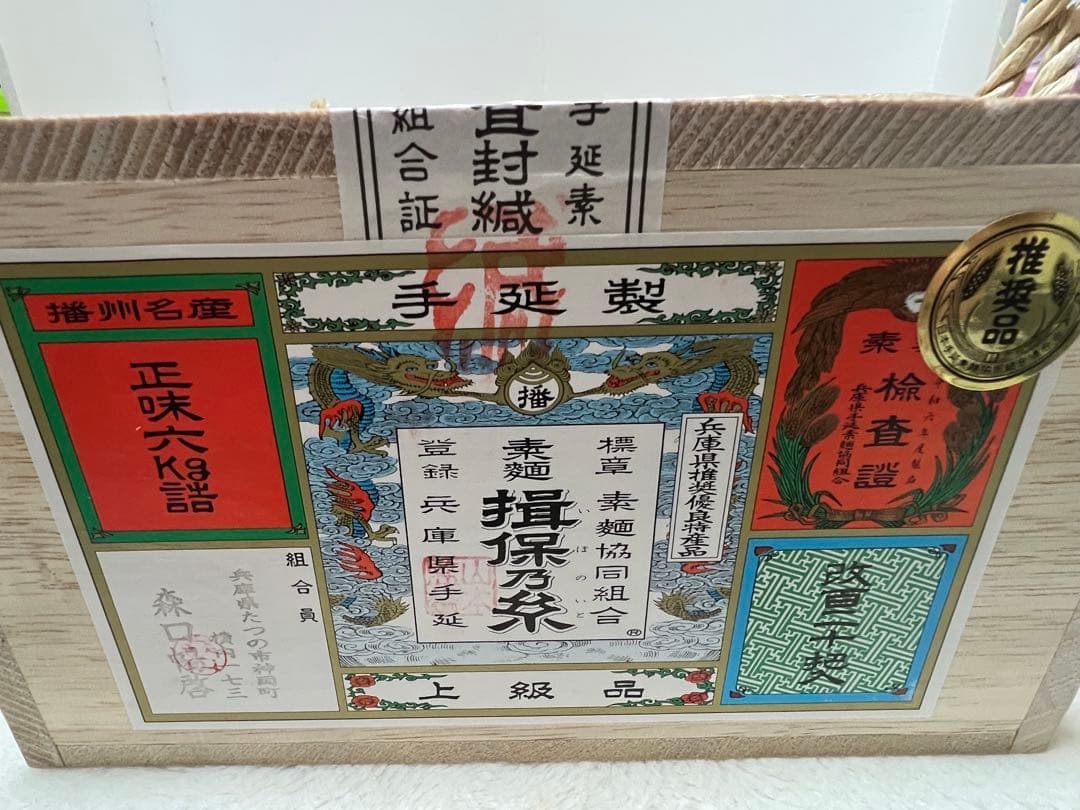 手延素
査封緘
組合証
推奨品
播州名産
正味六kg詰
手延製
播
兵庫県推奨優良特産品
標章 素麵協同組合
素麵 揖保乃糸
いぼのいと
登録 兵庫県手延
®
上級品
検査證
兵庫県手延素麵協同組合
組合員
兵庫県たつの市神岡町
一七三
森口